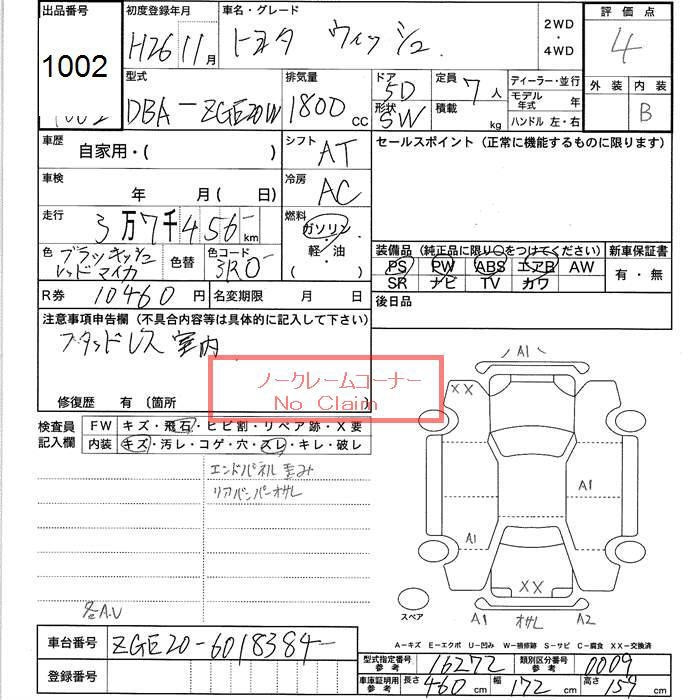 出品番号 初度登録年月 車名・グレード 2WD・4WD 評価点
1002 H26 11月 トヨタ ウィッシュ 4
型式 排気量 ドア 5D 定員 7人 ディーラー・並行 外装 内装
DBA-ZGE20W 1800cc 形状 SW 積載 kg モデル年式 年 B
ハンドル 左・右
車歴 自家用・( ) シフト AT セールスポイント (正常に機能するものに限ります)
車検 年 月( 日) 冷房 AC
走行 3万7千456km 燃料 ガソリン・軽・油 ( )
色 ブラッキッシュレッドマイカ 色替 色コード 3R0
装備品 (純正品に限り○をつけてください) 新車保証書
PS PW ABS エアB AW 有・無
SR ナビ TV カワ
R券 10460円 名変期限 月 日 後日品
注意事項申告欄 (不具合内容等は具体的に記入して下さい)
室内
ノークレームコーナー
No Claim
修復歴 有 (箇所
検査員記入欄 FW キズ・飛石・ヒビ割・リペア跡・X要
内装 キズ・汚レ・コゲ・穴・スレ・キレ・破レ
エンドパネル 歪み
リアバンパーオサレ
A1
XX
A1
A1
A1
XX
A1 オサレ A2
スペア
名A.V
A-キズ E-エクボ U-凹み W-補修跡 S-サビ C-腐食 XX-交換済
車台番号 ZGE20-6018384
登録番号
型式指定番号 参考 16272 類別区分番号 参考 0009
車庫証明用 参考 長さ 460cm 幅 172cm 高さ 159cm